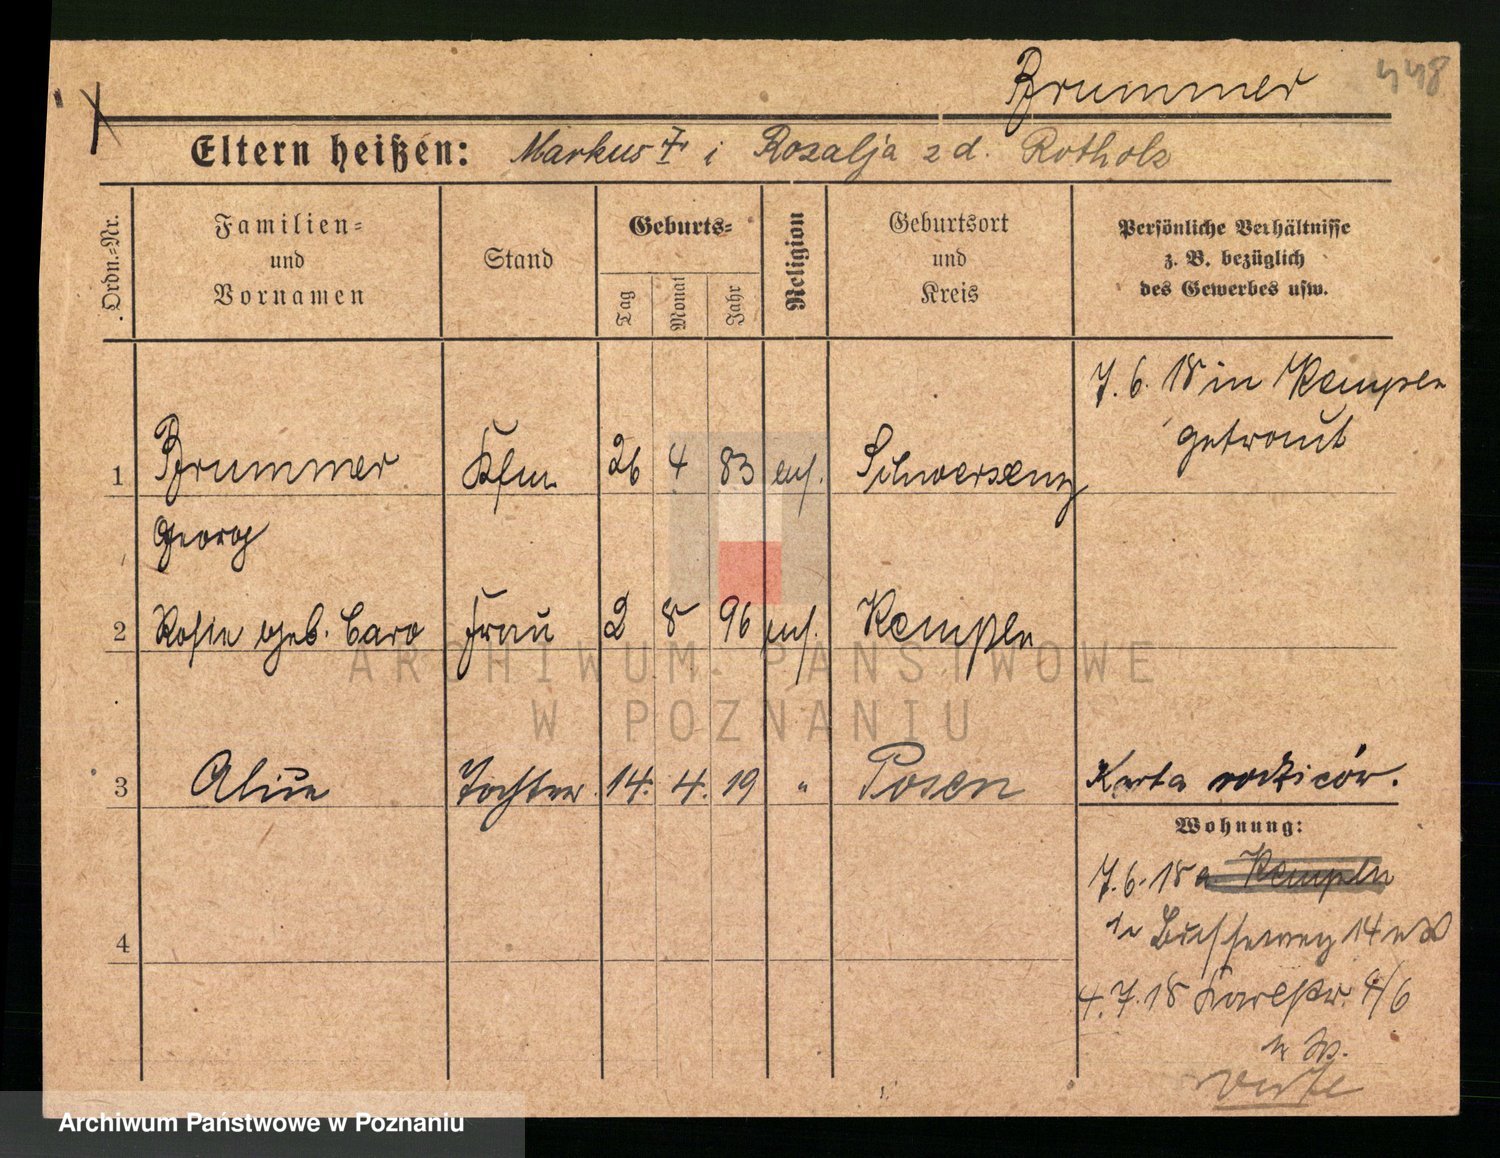 Brummer
448
Eltern heißen: Markus † i Rozalja z d. Rotholz
Ordn.-Nr.
Familien- und Vornamen
Stand
Geburts-
Tag
Monat
Jahr
Religion
Geburtsort und Kreis
Persönliche Verhältnisse
z. B. bezüglich
des Gewerbes usw.
7. 6. 18 in Kempen
getraut
1 Brummer Kfm 26 4 83 Schwersenz
Georg
2 geb. Caro Frau 2 8 96 Kempen
3 Tochter 14. 4. 19 " Posen Karta rodziców.
Wohnung:
7. 6. 18 Kempen
14
4
4. 7. 18 Karlstr. 4/6
verte
ARCHIWUM PAŃSTWOWE
W POZNANIU
Archiwum Państwowe w Poznaniu